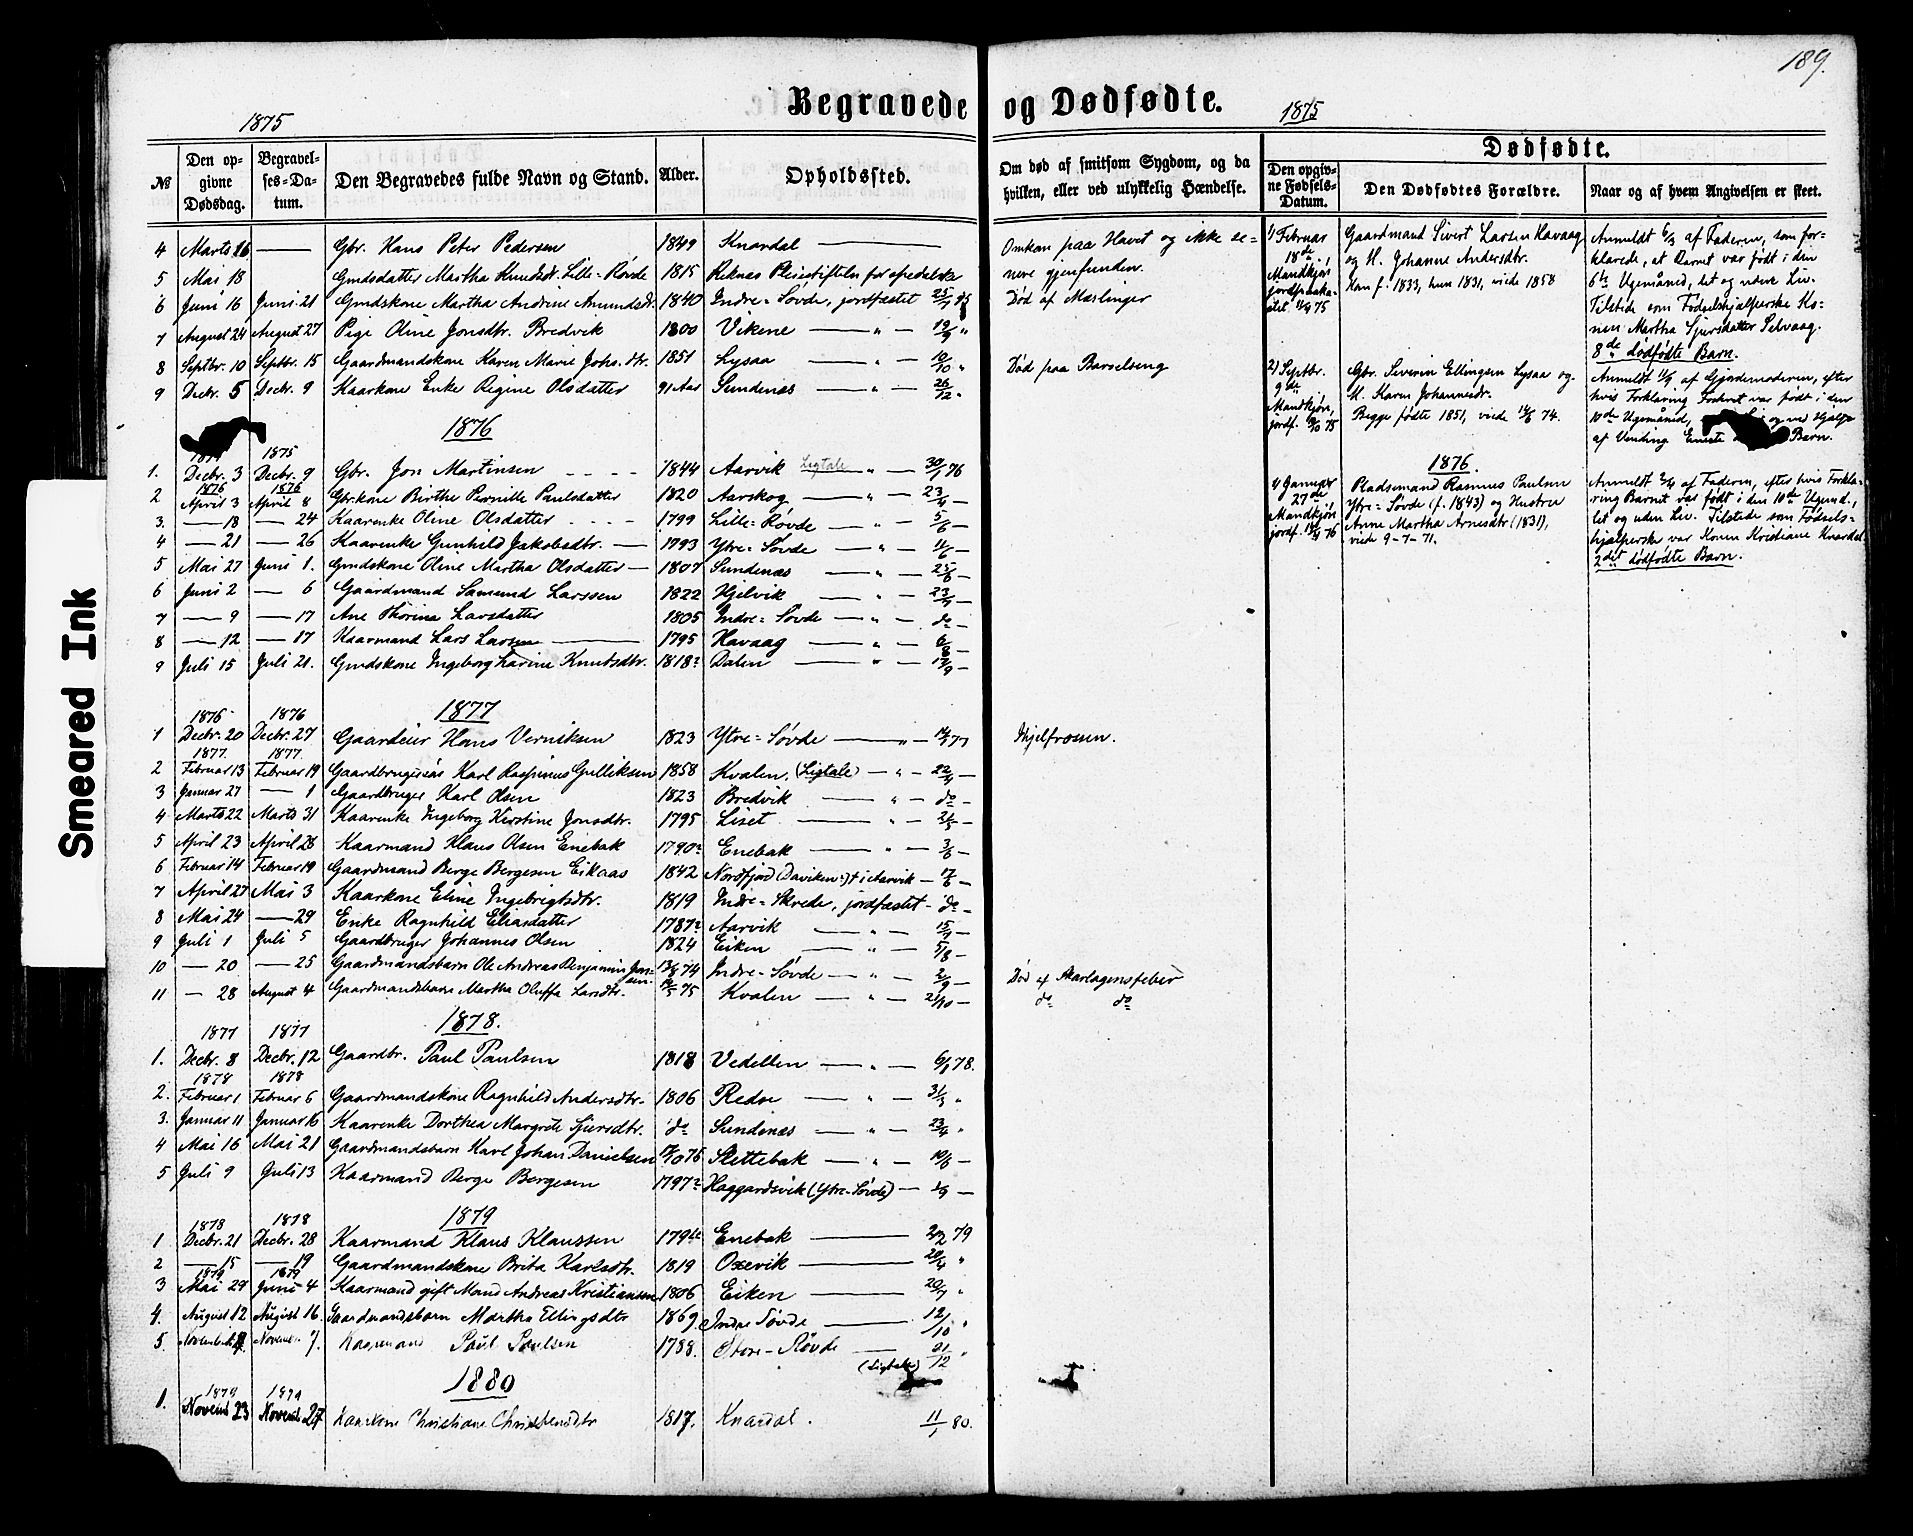 189.
Begravede og Dødfødte.
1875
1875
Smeared Ink
№
Den opgivne Dødsdag.
Begravelses-Datum.
Den Begravedes fulde Navn og Stand.
Alder.
Opholdssted.
Om død af smitsom Sygdom, og da hvilken, eller ved ulykkelig Hændelse.
Dødfødte.
Den opgivne Fødsels-Datum.
Den Dødfødtes Forældre.
Naar og af hvem Angivelsen er skeet.
4 Marts 16 — Gbr. Hans Peter Pedersen 1849 Knardal — Omkom paa Havet og ikke senere gjenfunden.
5 Mai 18 Gmdsdatter Martha Knudsdr. Lille-Røvde 1815 Reknæs Pleiestiftelse for spedalske
6 Juni 16 Juni 21 Gmdskone Martha Andrine Amundsdr. 1840 Indre-Søvde, jordfæstet 25/7 75 Død af Mæslinger
7 August 24 August 27 Pige Oline Jonsdtr. Bredvik 1800 Vikene — " — 19/9 "
8 Septbr. 10 Septbr. 15 Gaardmandskone Karen Marie Johs. dtr. 1851 Lysaa — " — 10/10 " Død paa Barselseng
9 Decbr. 5 Decbr. 9 Kaarkone Enke Regine Olsdatter 91 Aar Sundenæs — " — 26/12 "
1876
1875
1. Decbr. 3 Decbr. 9 Gbr. Jon Martinsen 1844 Aarvik Ligtale " — 30/1 76
1876 1876
2 April 3 April 8 Gbrkone Birthe Pernille Paulsdatter 1820 Aarskog — " — 23/4 —
3. — 18 — 24 Kaarenke Oline Olsdatter 1799 Lille-Røvde — " — 5/6 —
4 — 21 — 26 Kaarenke Gunhild Jakobsdtr. — 1793 Ytre-Søvde — " — 11/6 —
5 Mai 27 Juni 1. Gmdskone Oline Martha Olsdatter — 1807 Sundenæs — " — 25/6 —
6 Juni 2 — 6 Gaardmand Samund Larssen 1822 Hjelvik — " — 23/7 —
7 — 9 — 17 Ane Thorina Larsdatter 1805 Indre-Søvde — " — do —
8 — 12 — 17 Kaarmand Lars Larsen — 1795 Havaag — " — 6/8 —
9 Juli 15 Juli 21. Gmdskone Ingeborg Karine Knutsdtr. 1818 Dalen — " — 17/9 —
1877
1876 1876
1 Decbr. 20 Decbr. 27 Gaardeier Hans Verniksen 1823 Ytre-Søvde — " — 14/1 77 Ihjelfrossen.
1877. 1877.
2 Februar 13 Februar 19 Gaardbrugersøn Karl Rasmus Gulliksen 1858 Kvalen. (Ligtale) — " — 22/4 —
3 Januar 27 — 1 Gaardbruger Karl Olsen 1823 Bredvik — " — do —
4 Marts 22 Marts 31 Kaarenke Ingeborg Kirstine Jonsdtr. 1795 Liset — " — 21/5 —
5 April 23 April 28 Kaarmand Klaus Olsen Enebak 1790 Enebak — " — 3/6 —
6 Februar 14 Februar 19 Gaardmand Berge Bergesen Eikaas 1842 Nordfjord (Daviken) † i Aarvik — 17/6 —
7 April 27 Mai 3 Kaarkone Eline Ingebrigtsdtr. 1819 Indre-Skrede, jordfæstet — do —
8 Mai 24 — 29 Enke Ragnhild Eliasdatter 1787 Aarvik — " — 15/7 —
9 Juli 1 Juli 5 Gaardbruger Johannes Olsen 1824 Eiken — " — 5/8 —
10 — 20 — 25 Gaardmandsbarn Ole Andreas Benjamin Jonsen 13/8 74 Indre-Søvde — " — 2/9 — Død af Skarlagensfeber
11 — 28 August 4 Gaardmandsbarn Martha Oluffa Larsdtr. 75 Kvalen — " — 21/10 — do do
1878.
1877 1877
1. Decbr. 8 Decbr. 12 Gaardbr. Paul Paulsen 1818 Vedellen — " — 6/1 78.
1878 1878
2. Februar 1 Februar 6 Gaardmandskone Ragnhild Andersdtr. 1806 Redse — " — 31/3 "
3. Januar 11 Januar 16 Kaarenke Dorthea Margrete Sjursdtr. do Sundenæs — " — 23/4 "
4 Mai 16 Mai 21 Gaardmandsbarn Karl Johan Danielsen 17/10 75 Slettebak — " — 10/6 —
5 Juli 9 Juli 13 Kaarmand Berge Bergesen 1797 Haggardsvik (Ytre-Søvde) — 1/9 —
1879
1878 1878
1 Decbr. 21 Decbr. 28 Kaarmand Klaus Klaussen 1794 Enebak — 2/2 79
2 — 15 — 19 Gaardmandskone Brita Karlsdtr. 1819 Oxevik — 20/4 "
1879 1879
3 Mai 29 Juni 4 Kaarmand gift Mand Andreas Kristiansen 1806 Eiken — 20/7 "
4. August 12 August 16. Gaardmandsbarn Martha Ellingsdtr 1869. Indre Søvde — 12/10 "
5. Novemb. Novem. 7. Kaarmand Paul Paulsen 1788. Store-Røvde — 21/12 "
(Ligtale)
1880
1879 1879
1. Novemb 23 Novemb 27 Kaarkone Christiane Christensdtr 1817. Knardal. 11/1 80.
1) Februar 18de, Mandkjøn jordfæstet 11/4 75
Gaardmand Sivert Larsen Havaag
og H. Johanne Andersdtr.
Han f. 1833, hun 1831, viede 1858
Anmeldt 6/3 af Faderen, som forklarede, at Barnet var født i den
6te Ugemåned, let og uden Liv.
Tilstede som Fødselshjælperske Konen Martha Sjursdatter Selvaag.
8de dødfødte Barn.
2) Septbr. 9de Mandkjøn, jordf. 10/10 75
Gbr. Severin Ellingsen Lysaa og
H. Karen Johannesdr.
Begge fødte 1851, viede 14/6 74.
Anmeldt 11/9 af Gjordemoderen, efter
hvis Forklaring Fostret var født i den
10de Ugemåned, og ved Hjælp
af Vending Eneste Barn.
1876.
1) Januar 27de Mandkjøn jordf. 17/4 76
Pladsemand Rasmus Paulsen
Ytre-Søvde (f. 1843) og Hustru
Anne Martha Arnesdtr (1831),
viede 9-7-71.
Anmeldt af Faderen, efter hvis Forklaring Barnet var født i den 10de Ugemd.,
let og uden Liv. Tilstede som Fødselshjælperske var Konen Kristiane Knardal
2det dødfødte Barn.